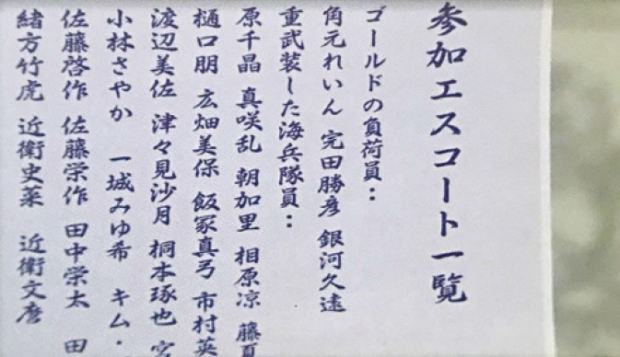 参加エスコート一覧
ゴールドの負荷員：
角元れいん 完田勝彦 銀河久遠
重武装した海兵隊員：
原千晶 真咲乱 朝加里 相原凉 藤夏
樋口朋 広畑美保 飯冢真弓 市村英
渡辺美佐 津々見沙月 桐本琢也 宮
小林さやか 一城みゆ希 キム・
佐藤啓作 佐藤栄作 田中栄太 田
緒方竹虎 近衛史菜 近衛文麿